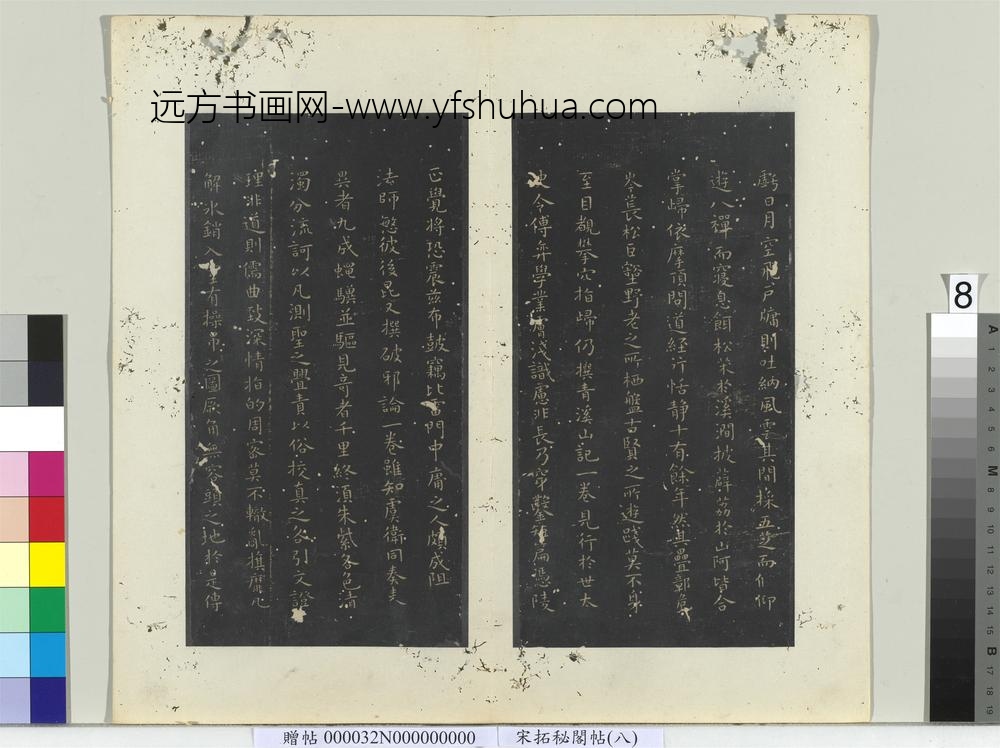 远方书画网-www.yfshuhua.com
虧日月空飛戶牖則吐納風雲其間採五芝而偃仰
遊八禪而寢息餌松朮於溪澗披薜荔於山阿皆合
掌歸依摩頂問道經行恬靜十有餘年然其疊鄣危
岑長松巨壑野老之所栖盤古賢之所遊踐莫不身
至目觀攀穴指歸仍撰青溪山記一卷見行於世太
史令傅弈學業膚淺識慮非長乃穿鑿短篇憑陵
正覺將恐震茲布皷竊比雷門中庸之人頗成阻
法師愍彼後昆又撰破邪論一卷雖知虞衛同奏表
異者九成蠅驥並驅見奇者千里終須朱紫各色清
濁分流訶以凡測聖之舋責以俗校真之咎引文證
理非道則儒曲致深情指的周密莫不轍亂旗靡瓦
解冰銷入室有操弔之圖厥角無容頭之地於是傳
8
A 1 2 3 4 5 6 M 8 9 10 11 12 13 14 15 B 17 18 19
贈帖 000032N000000000
宋拓秘閣帖(八)